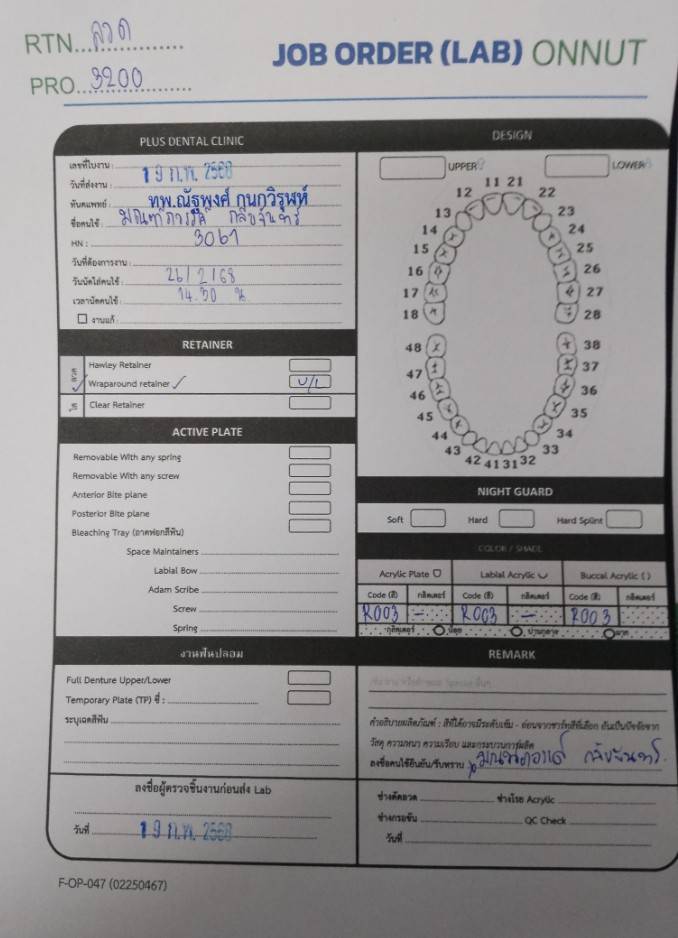 RTN. ลวด
JOB ORDER (LAB) ONNUT
PRO. 3200
PLUS DENTAL CLINIC
เลขที่ใบงาน :
วันที่ส่งงาน : 19 ก.พ. 2568
ทันตแพทย์ : ทพ.ณัฐพงศ์ กุนกวิรุฬห์
ชื่อคนไข้ :
HN : 3061
วันที่ต้องการงาน :
วันนัดใส่คนไข้ : 26/2/68
เวลานัดคนไข้ : 14.30 น
งานแก้ :
RETAINER
ลวด
Hawley Retainer
Wraparound retainer ✓ U/L
ใส
Clear Retainer
ACTIVE PLATE
Removable With any spring
Removable With any screw
Anterior Bite plane
Posterior Bite plane
Bleaching Tray (ถาดฟอกสีฟัน)
Space Maintainers
Labial Bow
Adam Scribe
Screw
Spring
งานฟันปลอม
Full Denture Upper/Lower
Temporary Plate (TP) ซี่ :
ระบุเฉดสีฟัน
ลงชื่อผู้ตรวจชิ้นงานก่อนส่ง Lab
วันที่ 19 ก.พ. 2568
DESIGN
UPPER LOWER
11 21
12 22
13 23
14 24
15 25
16 26
17 27
18 28
48 38
47 37
46 36
45 35
44 34
43 33
42 41 31 32
NIGHT GUARD
Soft Hard Hard Splint
COLOR / SHADE
Acrylic Plate Labial Acrylic Buccal Acrylic ( )
Code (สี) กลิตเตอร์ Code (สี) กลิตเตอร์ Code (สี) กลิตเตอร์
R003 - R003 - R003
กลิตเตอร์ น้อย ปานกลาง มาก
REMARK
คำอธิบายผลิตภัณฑ์ : สีที่ได้อาจมีระดับเข้ม - อ่อนจากชาร์ทสีที่เลือก อันเป็นปัจจัยจาก
วัสดุ ความหนา ความเรียบ และกระบวนการผลิต
ลงชื่อคนไข้ยืนยัน/รับทราบ
ช่างดัดลวด ช่างโรย Acrylic
ช่างกรอขัด QC Check
วันที่
F-OP-047 (02250467)